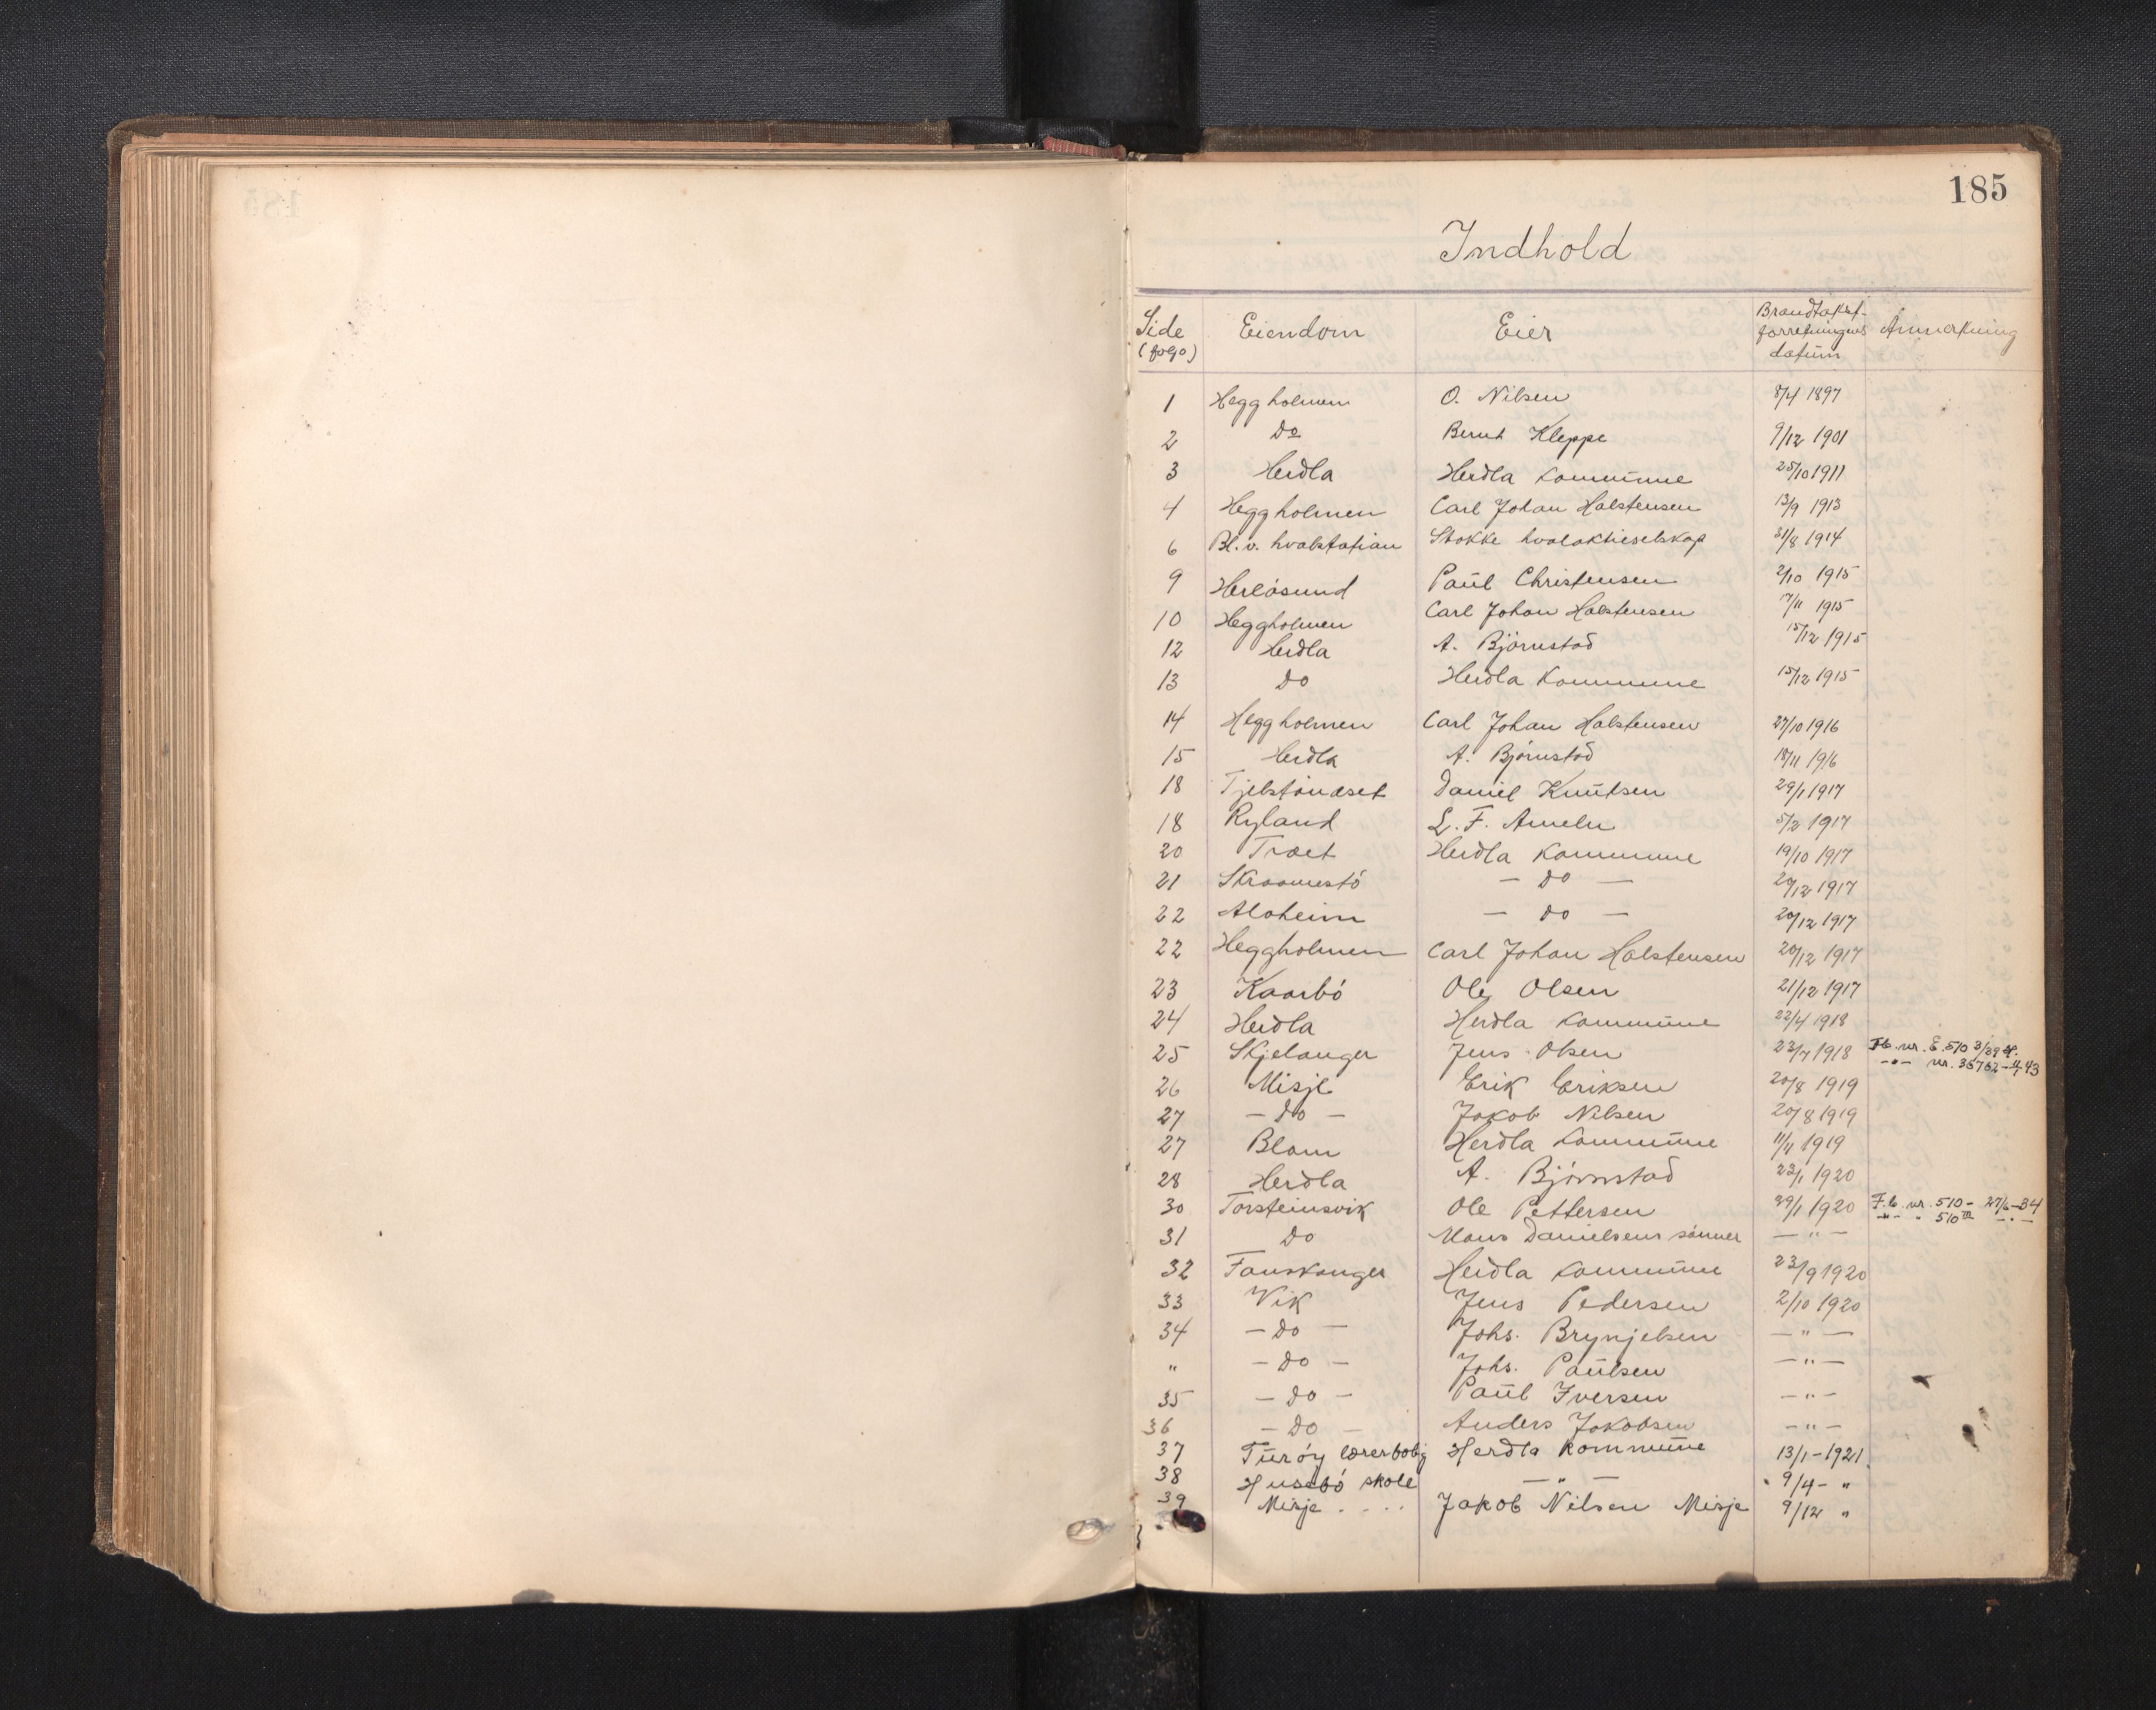 185
Indhold
Side (folio) Eiendom Eier Brandtakst-forretningens datum Anmerkning
1 Heggholmen O. Nilsen 8/4 1897
2 Do Bernt Kleppe 9/12 1901
3 Herdla Herdla Kommune 25/10 1911
4 Heggholmen Carl Johan Halstensen 13/9 1913
6 Bl. v. hvalstation Stokke hvalaktieselskap 31/8 1914
9 Herløsund Paul Christensen 2/10 1915
10 Heggholmen Carl Johan Halstensen 17/11 1915
12 Herdla A. Björnstad 15/12 1915
13 Do Herdla Kommune 15/12 1915
14 Heggholmen Carl Johan Halstensen 27/10 1916
15 Herdla A. Bjørnstad 18/11 1916
18 Tjelstøneset Daniel Knutsen 29/1 1917
18 Ryland L. F. Ameln 5/2 1917
20 Træet Herdla Kommune 19/10 1917
21 Skraamestö — Do — 20/12 1917
22 Aloheim — Do — 20/12 1917
22 Heggholmen Carl Johan Halstensen 20/12 1917
23 Kaarbö Ole Olsen 21/12 1917
24 Herdla Herdla Kommune 22/4 1918
25 Skjelanger Jens Olsen 23/7 1918 Fb. nr. E. 510 3/39
-"- nr. 36762 43
26 Misje Erik Eriksen 20/8 1919
27 — Do — Jakob Nilsen 20/8 1919
27 Blom Herdla Kommune 11/11 1919
28 Herdla A. Bjørnstad 23/1 1920
30 Torsteinsvik Ole Pettersen 29/1 1920 F.b. nr. 510 - 27/6-34
-"- " 510 III -"-
31 Do Mons Danielsens sönner — " —
32 Fauskanger Herdla Kommune 23/9 1920
33 Vik Jens Pedersen 2/10 1920
34 — Do — Johs. Brynjelsen — " —
" — Do — Johs. Paulsen — " —
35 — Do — Paul Iversen — " —
36 — Do — Anders Jakobsen — " —
37 Turøy lærerbolig Herdla Kommune 13/1 - 1921
38 Husebó skole — " — 9/4 - "
39 Misje . . . . Jakob Nilsen Misje 9/12 "